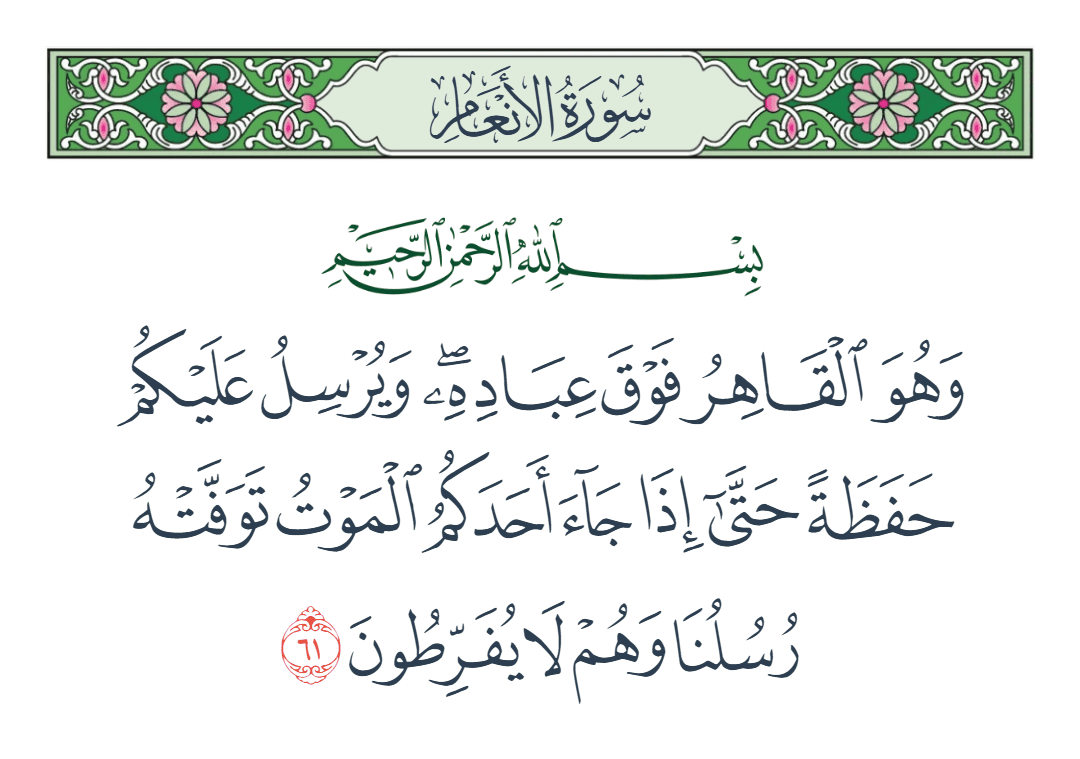 سُورَةُ الأَنْعَامِ
بِسْمِ ٱللَّهِ ٱلرَّحْمَٰنِ ٱلرَّحِيمِ
وَهُوَ ٱلْقَاهِرُ فَوْقَ عِبَادِهِۦۖ وَيُرْسِلُ عَلَيْكُمْ
حَفَظَةً حَتَّىٰٓ إِذَا جَآءَ أَحَدَكُمُ ٱلْمَوْتُ تَوَفَّتْهُ
رُسُلُنَا وَهُمْ لَا يُفَرِّطُونَ ٦١